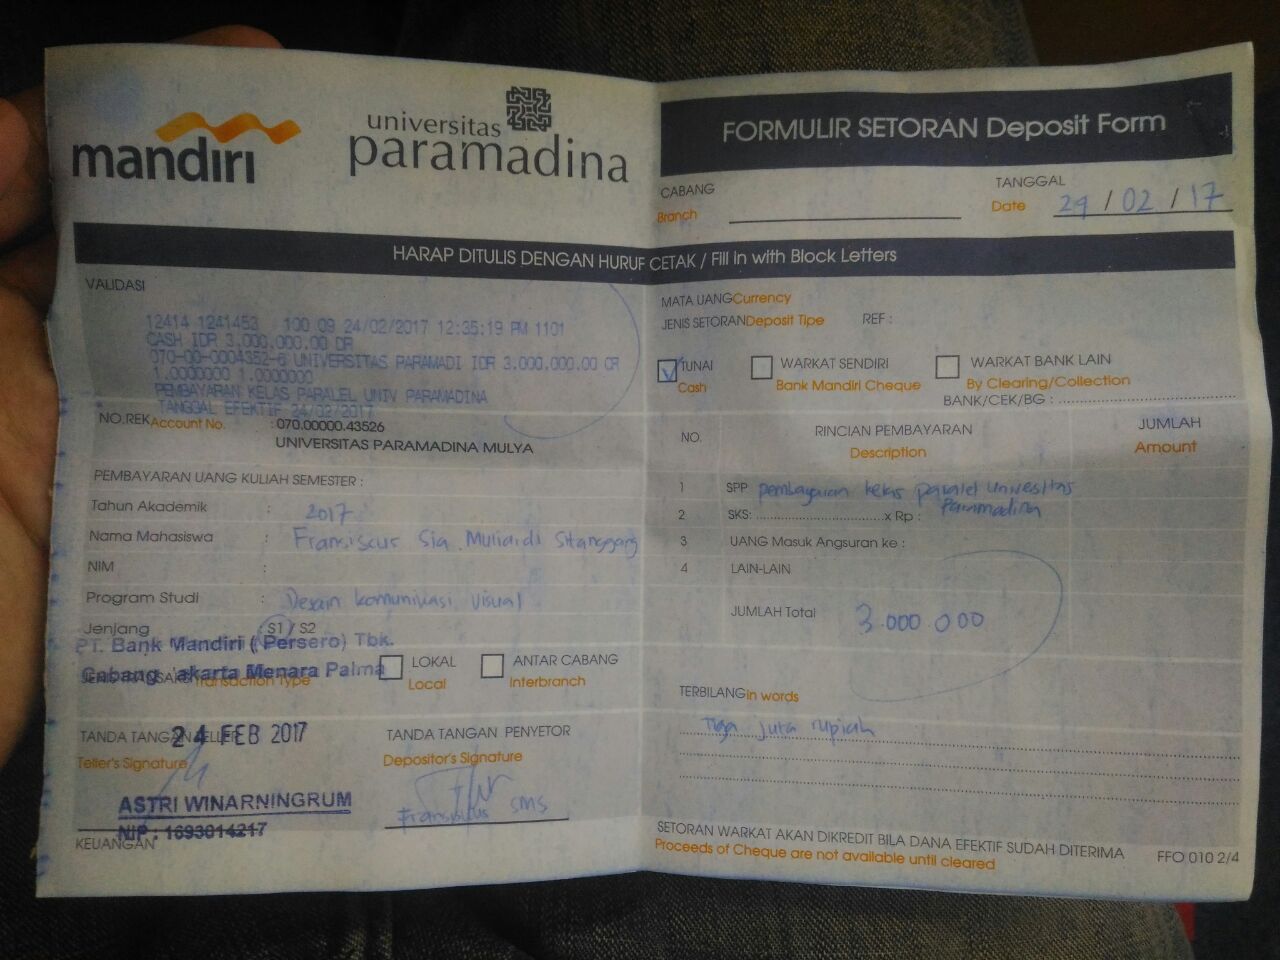 mandiri
universitas
paramadina
FORMULIR SETORAN Deposit Form
CABANG
Branch
TANGGAL
Date 24 / 02 / 17
HARAP DITULIS DENGAN HURUF CETAK / Fill in with Block Letters
VALIDASI
12414 1241453 100 09 24/02/2017 12:35:19 PM 1101
CASH IDR 3.000.000.00 DR
070-00-0004352-6 UNIVERSITAS PARAMADI IDR 3.000.000.00 CR
1.0000000 1.0000000
PEMBAYARAN KELAS PARALEL UNIV PARAMADINA
TANGGAL EFEKTIF 24/02/2017
NO.REK Account No. : 070.00000.43526
UNIVERSITAS PARAMADINA MULYA
PEMBAYARAN UANG KULIAH SEMESTER :
Tahun Akademik : 2017
Nama Mahasiswa : Fransiscus Sia Muliardi Sitanggang
NIM :
Program Studi : Desain komunikasi visual
Jenjang S1 / S2
PT. Bank Mandiri ( Persero) Tbk.
Cabang Jakarta Menara Palma
JENIS TRANSAKSI Transaction Type
LOKAL
Local
ANTAR CABANG
Interbranch
TANDA TANGAN TELLER
Teller's Signature
24 FEB 2017
ASTRI WINARNINGRUM
NIP : 1693014217
KEUANGAN
TANDA TANGAN PENYETOR
Depositor's Signature
Fransiscus SMS
MATA UANG Currency
JENIS SETORAN Deposit Tipe REF :
TUNAI
Cash
WARKAT SENDIRI
Bank Mandiri Cheque
WARKAT BANK LAIN
By Clearing/Collection
BANK/CEK/BG :
NO. RINCIAN PEMBAYARAN JUMLAH
Description Amount
1 SPP pembayaran kelas paralel Universitas
Paramadina
2 SKS: x Rp :
3 UANG Masuk Angsuran ke :
4 LAIN-LAIN
JUMLAH Total 3.000.000
TERBILANG In words
Tiga juta rupiah
SETORAN WARKAT AKAN DIKREDIT BILA DANA EFEKTIF SUDAH DITERIMA
Proceeds of Cheque are not available until cleared
FFO 010 2/4